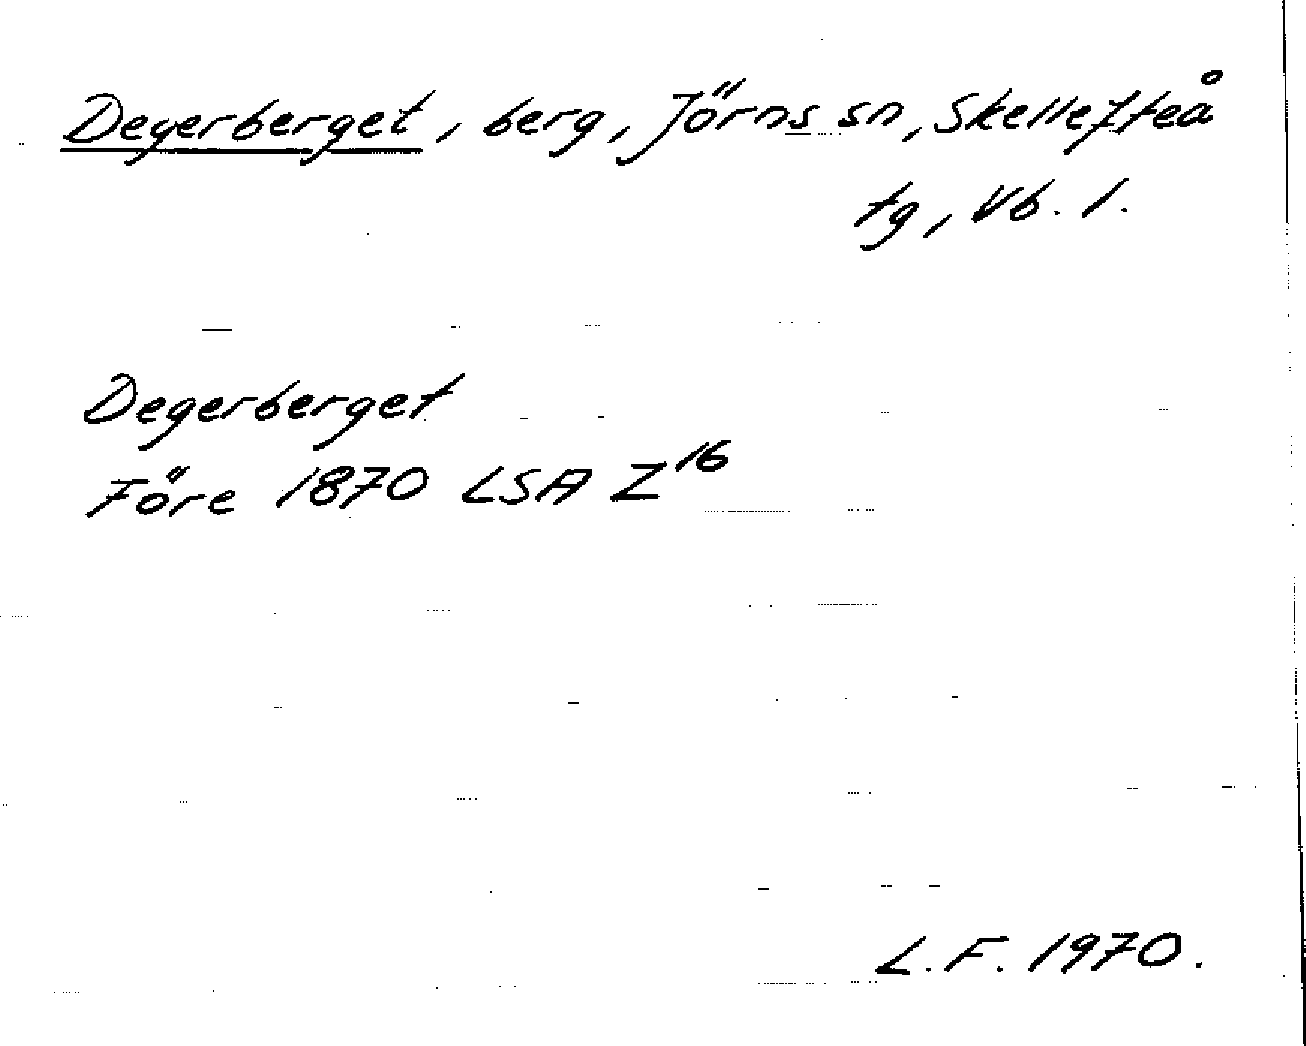 Degerberget, berg, Jörns sn, Skellefteå
tg, Vb. l.
Degerberget
Före 1870 LSA Z16
L.F. 1970.